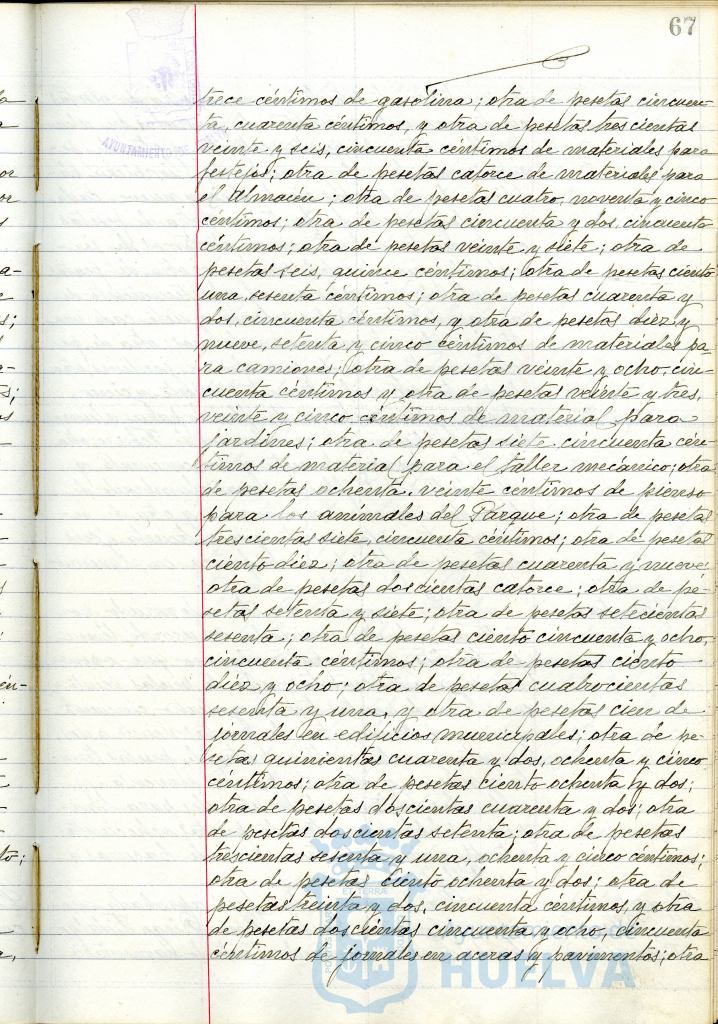 67
trece céntimos de gasolina; otra de pesetas cincuen-
ta, cuarenta céntimos, y otra de pesetas trescientas
veinte y seis, cincuenta céntimos de materiales para
festejos; otra de pesetas catorce de materiales para
el Almacén; otra de pesetas cuatro, noventa y cinco
céntimos; otra de pesetas cincuenta y dos, cincuenta
céntimos; otra de pesetas veinte y siete; otra de
pesetas seis, quince céntimos; otra de pesetas ciento
una, sesenta céntimos; otra de pesetas cuarenta y
dos, cincuenta céntimos, y otra de pesetas diez y
nueve, setenta y cinco céntimos de materiales pa-
ra camiones; otra de pesetas veinte y ocho, cin-
cuenta céntimos y otra de pesetas veinte y tres,
veinte y cinco céntimos de material para
jardines; otra de pesetas siete, cincuenta cén-
timos de material para el taller mecánico; otra
de pesetas ochenta, veinte céntimos de pienso
para los animales del Parque; otra de pesetas
trescientas siete, cincuenta céntimos; otra de pesetas
ciento diez; otra de pesetas cuarenta y nueve;
otra de pesetas doscientas catorce; otra de pe-
setas setenta y siete; otra de pesetas setecientas
sesenta; otra de pesetas ciento cincuenta y ocho,
cincuenta céntimos; otra de pesetas ciento
diez y ocho; otra de pesetas cuatrocientas
sesenta y una, y otra de pesetas cien de
jornales en edificios municipales; otra de pe-
setas quinientas cuarenta y dos, ochenta y cinco
céntimos; otra de pesetas ciento ochenta y dos;
otra de pesetas doscientas cuarenta y dos; otra
de pesetas doscientas setenta; otra de pesetas
trescientas sesenta y una, ochenta y cinco céntimos;
otra de pesetas ciento ochenta y dos; otra de
pesetas treinta y dos, cincuenta céntimos, y otra
de pesetas doscientas cincuenta y ocho, cincuenta
céntimos de jornales en aceras y pavimentos; otra
AYUNTAMIENTO DE
HUELVA